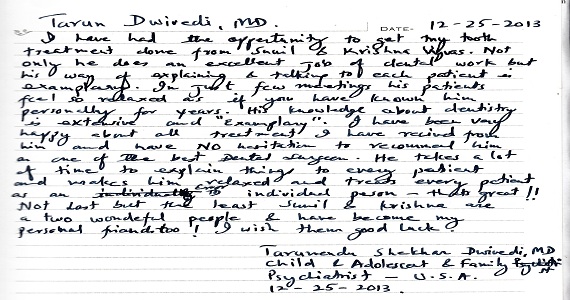 Tarun Dwivedi, MD.
DATE- 12-25-2013
I have had the opportunity to get my tooth
treatment done from Sunil & Krishna Vyas. Not
only he does an excellent job of dental work but
his way of explaining & talking to each patient is
examplary. In just few meetings his patients
feel so relaxed as if you have known him
personally for years. His knowledge about dentistry
is extensive and "Examplary". I have been very
happy about all treatment I have recived from
him and have NO hasitation to recommend him
as one of the best Dental Surgeon. He takes a lot
of time to explain things to every patient
and makes him relaxed and treats every patient
as an individual person - thats great!!
Not last but the least Sunil & Krishna are
a two wondeful people & have become my
personal friends too! I wish them good luck.
Tarunendu Shekhar Dwivedi, MD
Child & Adolescent & Family
Psychiatrist - U.S.A.
12-25-2013.